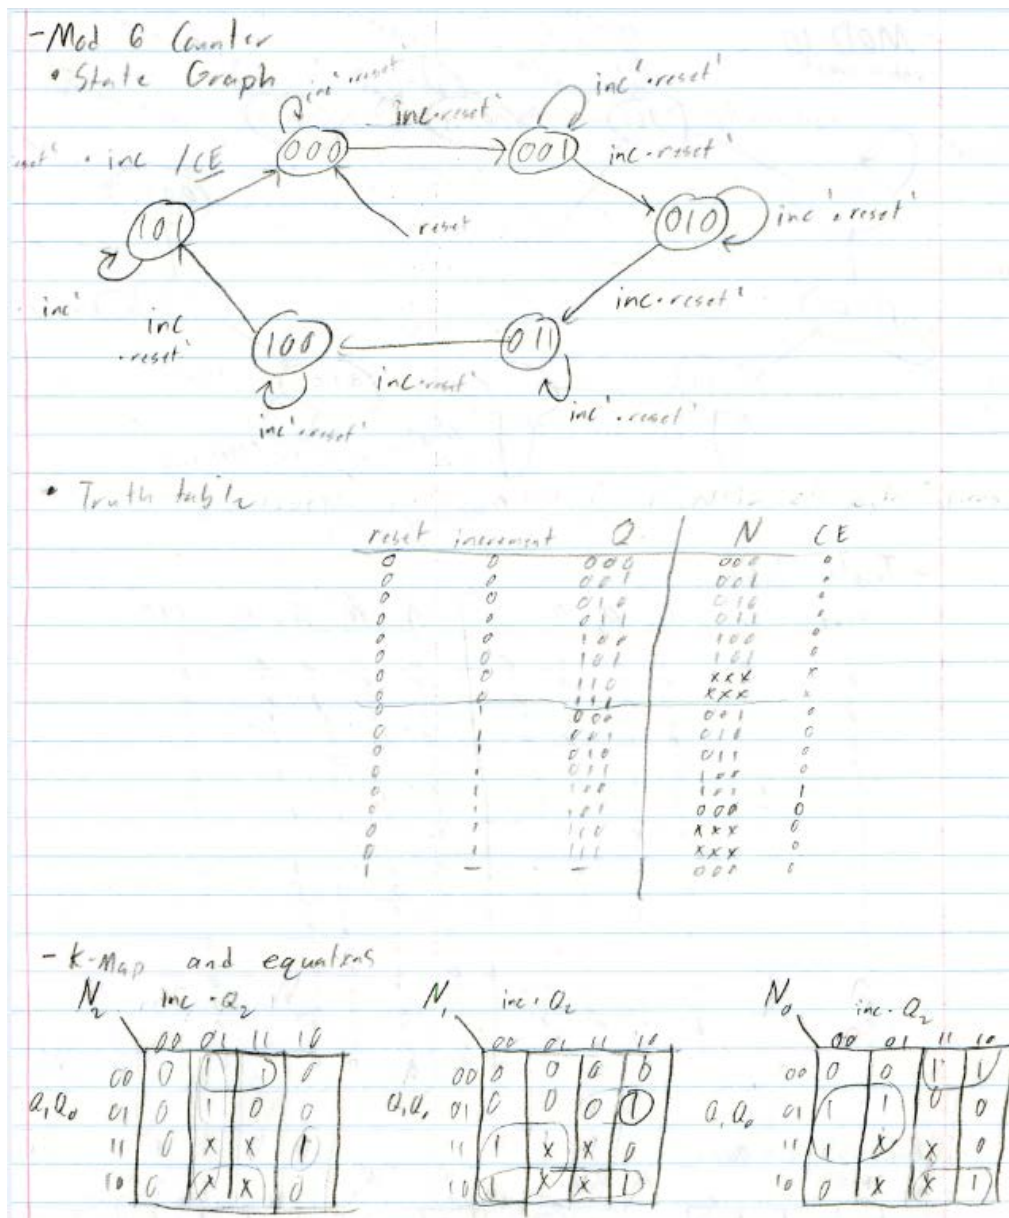 -Mod 6 Counter
• State Graph
inc'·reset'
inc·reset'
inc'·reset'
· inc /CE
000
001
inc·reset'
101
reset
010
inc'·reset'
inc'
inc
·reset'
inc·reset'
100
011
inc·reset'
inc'·reset'
inc'·reset'
• Truth table
reset increment Q N CE
0 0 000 000 0
0 0 001 001 0
0 0 010 010 0
0 0 011 011 0
0 0 100 100 0
0 0 101 101 0
0 0 110 xxx x
0 0 111 xxx x
0 1 000 001 0
0 1 001 010 0
0 1 010 011 0
0 1 011 100 0
0 1 100 101 1
0 1 101 000 0
0 1 110 xxx 0
0 1 111 xxx 0
1 - - 000 0
- K-Map and equations
N2 inc·Q2 N1 inc·Q2 N0 inc·Q2
00 01 11 10 00 01 11 10 00 01 11 10
00 0 1 1 0 00 0 0 0 0 00 0 0 1 1
Q1Q0 01 0 1 0 0 Q1Q0 01 0 0 0 1 Q1Q0 01 1 1 0 0
11 0 x x 1 11 1 x x 0 11 1 x x 0
10 0 x x 0 10 1 x x 1 10 0 x x 1